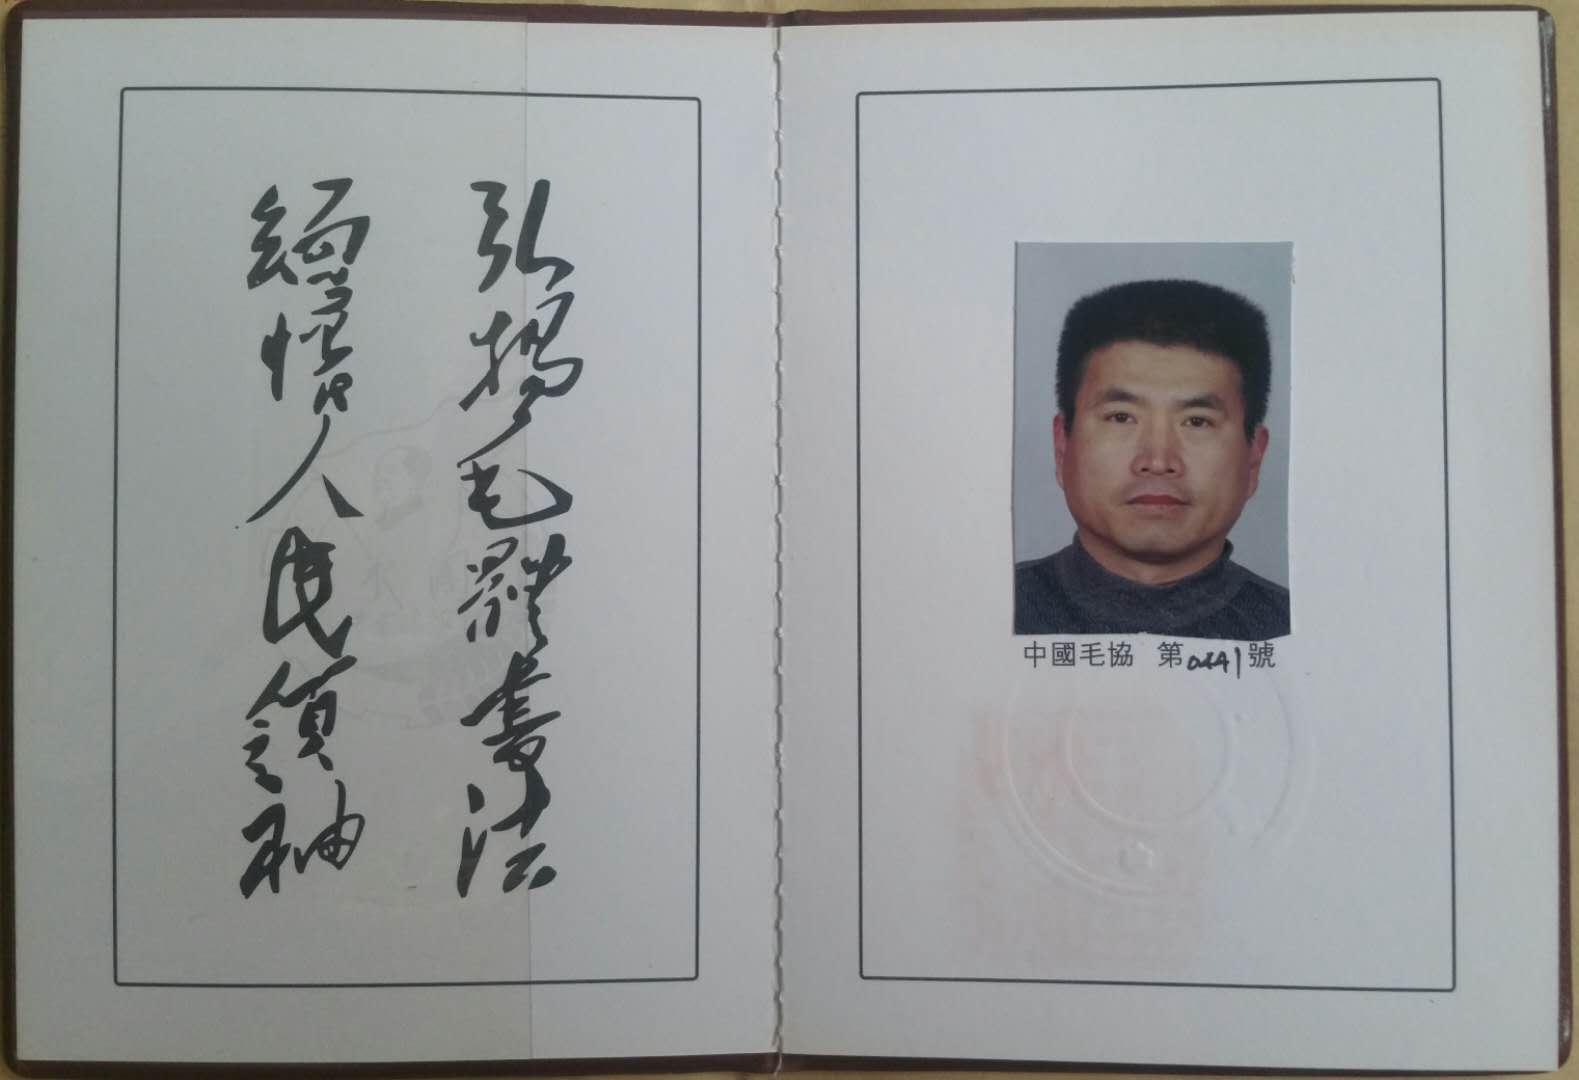 弘揚毛體書法
緬懷人民領袖
中國毛協 第0441號